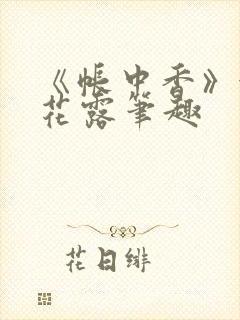 《帐中香》
花露笔趣
花日绯